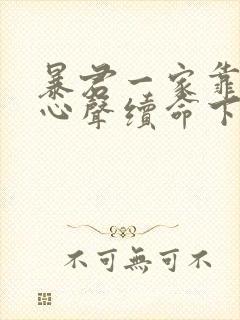 暴君一家靠
心聲續命下
不可無可不